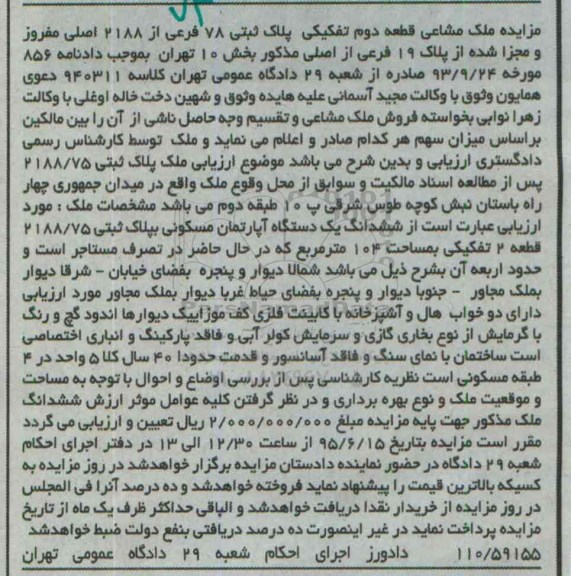 مزایده ملک مشاعی قطعه دوم تفکیکی پلاک ثبتی ۷۸ فرعی از ۲۱۸۸ اصلی مفروز
و مجزا شده از پلاک ۱۹ فرعی از اصلی مذکور بخش ۱۰ تهران بموجب دادنامه ۸۵۶
مورخه ۹۳/۹/۲۴ صادره از شعبه ۲۹ دادگاه عمومی تهران کلاسه ۹۴۰۳۱۱ دعوی
همایون وثوق با وکالت مجید آسمانی علیه هایده وثوق و شهین دخت خاله اوغلی با وکالت
زهرا نوابی بخواسته فروش ملک مشاعی و تقسیم وجه حاصل ناشی از آن را بین مالکین
براساس میزان سهم هر کدام صادر و اعلام می نماید و ملک توسط کارشناس رسمی
دادگستری ارزیابی و بدین شرح می باشد موضوع ارزیابی ملک پلاک ثبتی ۲۱۸۸/۷۵
پس از مطالعه اسناد مالکیت و سوابق از محل وقوع ملک واقع در میدان جمهوری چهار
راه باستان نبش کوچه طوس شرقی پ ۱۰ طبقه دوم می باشد مشخصات ملک : مورد
ارزیابی عبارت است از ششدانگ یک دستگاه آپارتمان مسکونی بپلاک ثبتی ۲۱۸۸/۷۵
قطعه ۲ تفکیکی بمساحت ۱۰۴ مترمربع که در حال حاضر در تصرف مستاجر است و
حدود اربعه آن بشرح ذیل می باشد شمالا دیوار و پنجره بفضای خیابان – شرقا دیوار
بملک مجاور – جنوبا دیوار و پنجره بفضای حیاط غربا دیوار بملک مجاور مورد ارزیابی
دارای دو خواب هال و آشپزخانه با کابینت فلزی کف موزاییک دیوارها اندود گچ و رنگ
با گرمایش از نوع بخاری گازی و سرمایش کولر آبی و فاقد پارکینگ و انباری اختصاصی
است ساختمان با نمای سنگ و فاقد آسانسور و قدمت حدودا ۴۰ سال کلا ۵ واحد در ۴
طبقه مسکونی است نظریه کارشناسی پس از بررسی اوضاع و احوال با توجه به مساحت
و موقعیت ملک و نوع بهره برداری و در نظر گرفتن کلیه عوامل موثر ارزش ششدانگ
ملک مذکور جهت پایه مزایده مبلغ ۲/۰۰۰/۰۰۰/۰۰۰ ریال تعیین و ارزیابی می گردد
مقرر است مزایده بتاریخ ۹۵/۶/۱۵ از ساعت ۱۲/۳۰ الی ۱۳ در دفتر اجرای احکام
شعبه ۲۹ دادگاه در حضور نماینده دادستان مزایده برگزار خواهدشد در روز مزایده به
کسیکه بالاترین قیمت را پیشنهاد نماید فروخته خواهدشد و ده درصد آنرا فی المجلس
در روز مزایده از خریدار نقدا دریافت خواهدشد و الباقی حداکثر ظرف یک ماه از تاریخ
مزایده پرداخت نماید در غیر اینصورت ده درصد دریافتی بنفع دولت ضبط خواهدشد
۱۱۰/۵۹۱۵۵ دادورز اجرای احکام شعبه ۲۹ دادگاه عمومی تهران